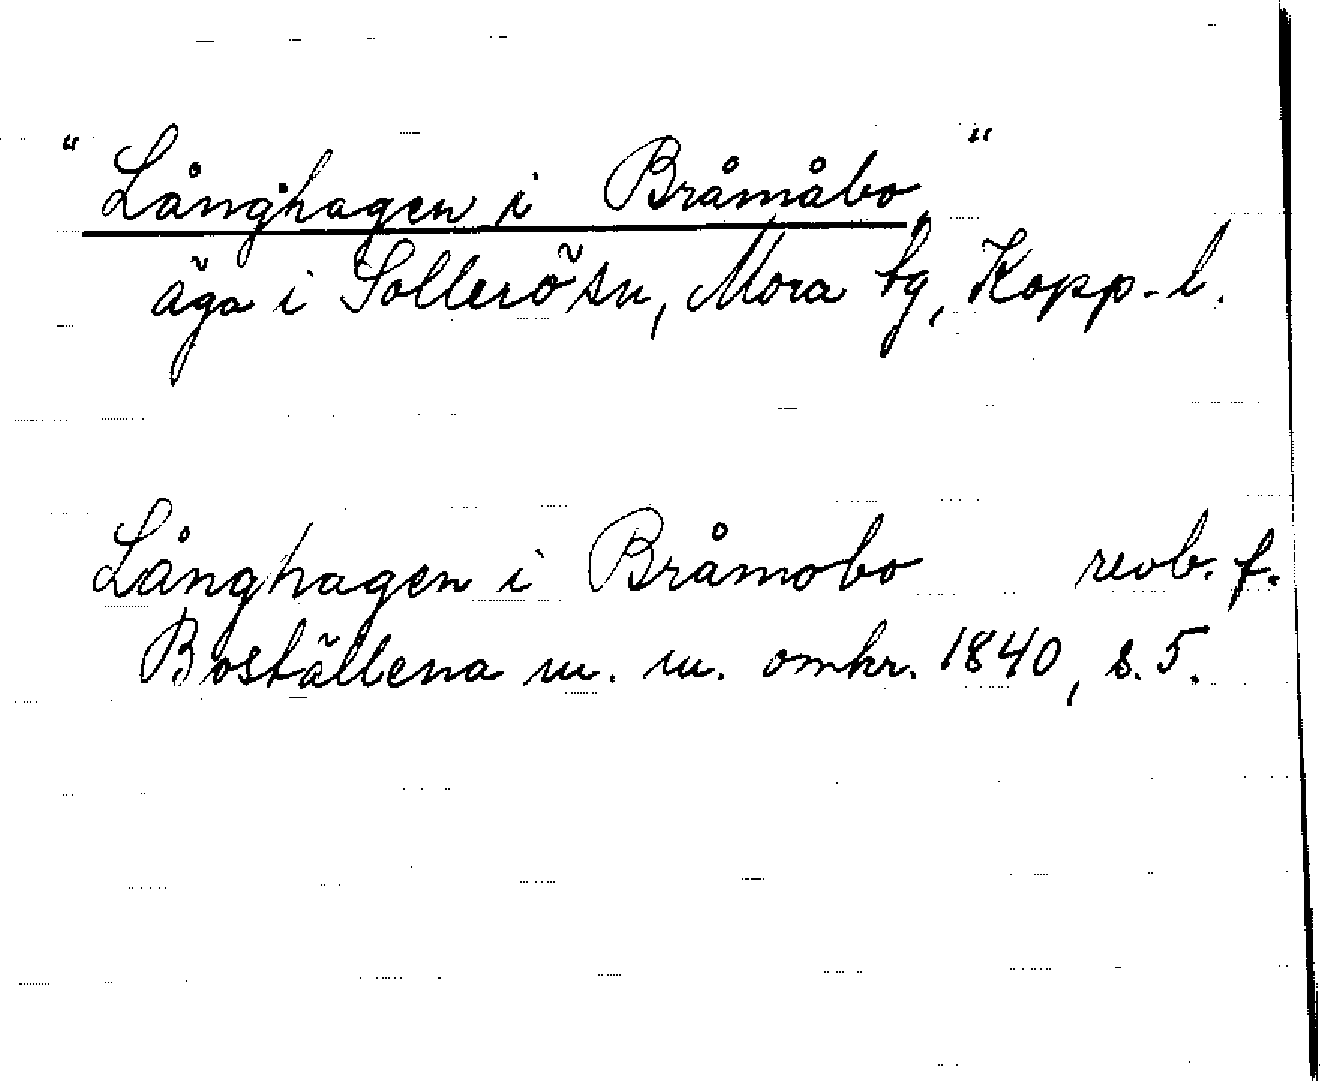 "Långhagen i Bråmåbo"
äga i Sollerö sn, Mora tg, Kopp-l.
Långhagen i Bråmobo revb. f.
Boställena m. m. omkr. 1840, s. 5.